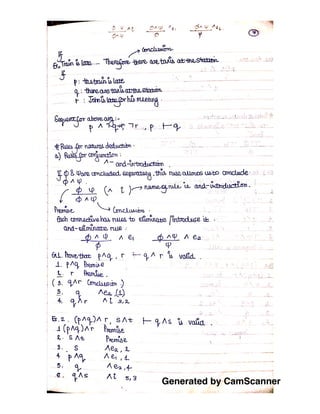 → Conclusion
Ex. Train is late ... Therefore there are taxis at the station
p : the train is late
q : there are taxis at the station
r : John is late for his meeting.
Sequent for above arg :-
p ∧ ¬q → r, ¬r, p ⊢ q
Rules for natural deduction
a) Rules for conjunction :
∧ - and-introduction
If φ & ψ are concluded separately, this rule allows us to conclude
φ ∧ ψ .
φ ψ (∧ i) → name of rule is and-introduction.
φ ∧ ψ
Premise → Conclusion
Each connective has rules to eliminate / Introduce it
and-eliminate rule :
φ ∧ ψ ∧ e1 φ ∧ ψ ∧ e2
φ ψ
Ex1. Prove that p∧q , r ⊢ q ∧ r is valid.
1. p∧q Premise
2. r Premise.
( 3. q∧r Conclusion )
3. q ∧e2 (1)
4. q∧r ∧i 3,2
Ex. 2. (p∧q)∧r , s∧t ⊢ q∧s is valid
1 (p∧q)∧r Premise
2. s∧t Premise
3. s ∧e1, 2
4 p∧q ∧e1, 1
5. q ∧e2, 4
6. q∧s ∧i 5,3
Generated by CamScanner